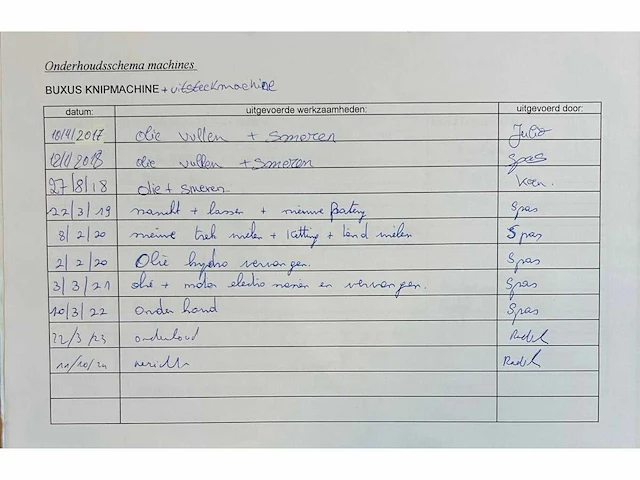 Onderhoudsschema machines
BUXUS KNIPMACHINE + uitsteekmachine
datum: uitgevoerde werkzaamheden: uitgevoerd door:
10/4/2017 olie vullen + smeren Julio
12/1/2018 olie vullen + smeren Spas
27/8/18 olie + smeren Koen.
22/3/19 + lassen + nieuwe Spas
8/2/20 nieuwe trek wielen + ketting + wielen Spas
2/2/20 Olie hydro vervangen. Spas
3/3/21 olie + motor electro en vervangen. Spas
10/3/22 onder houd Spas
22/3/23 onderhoud